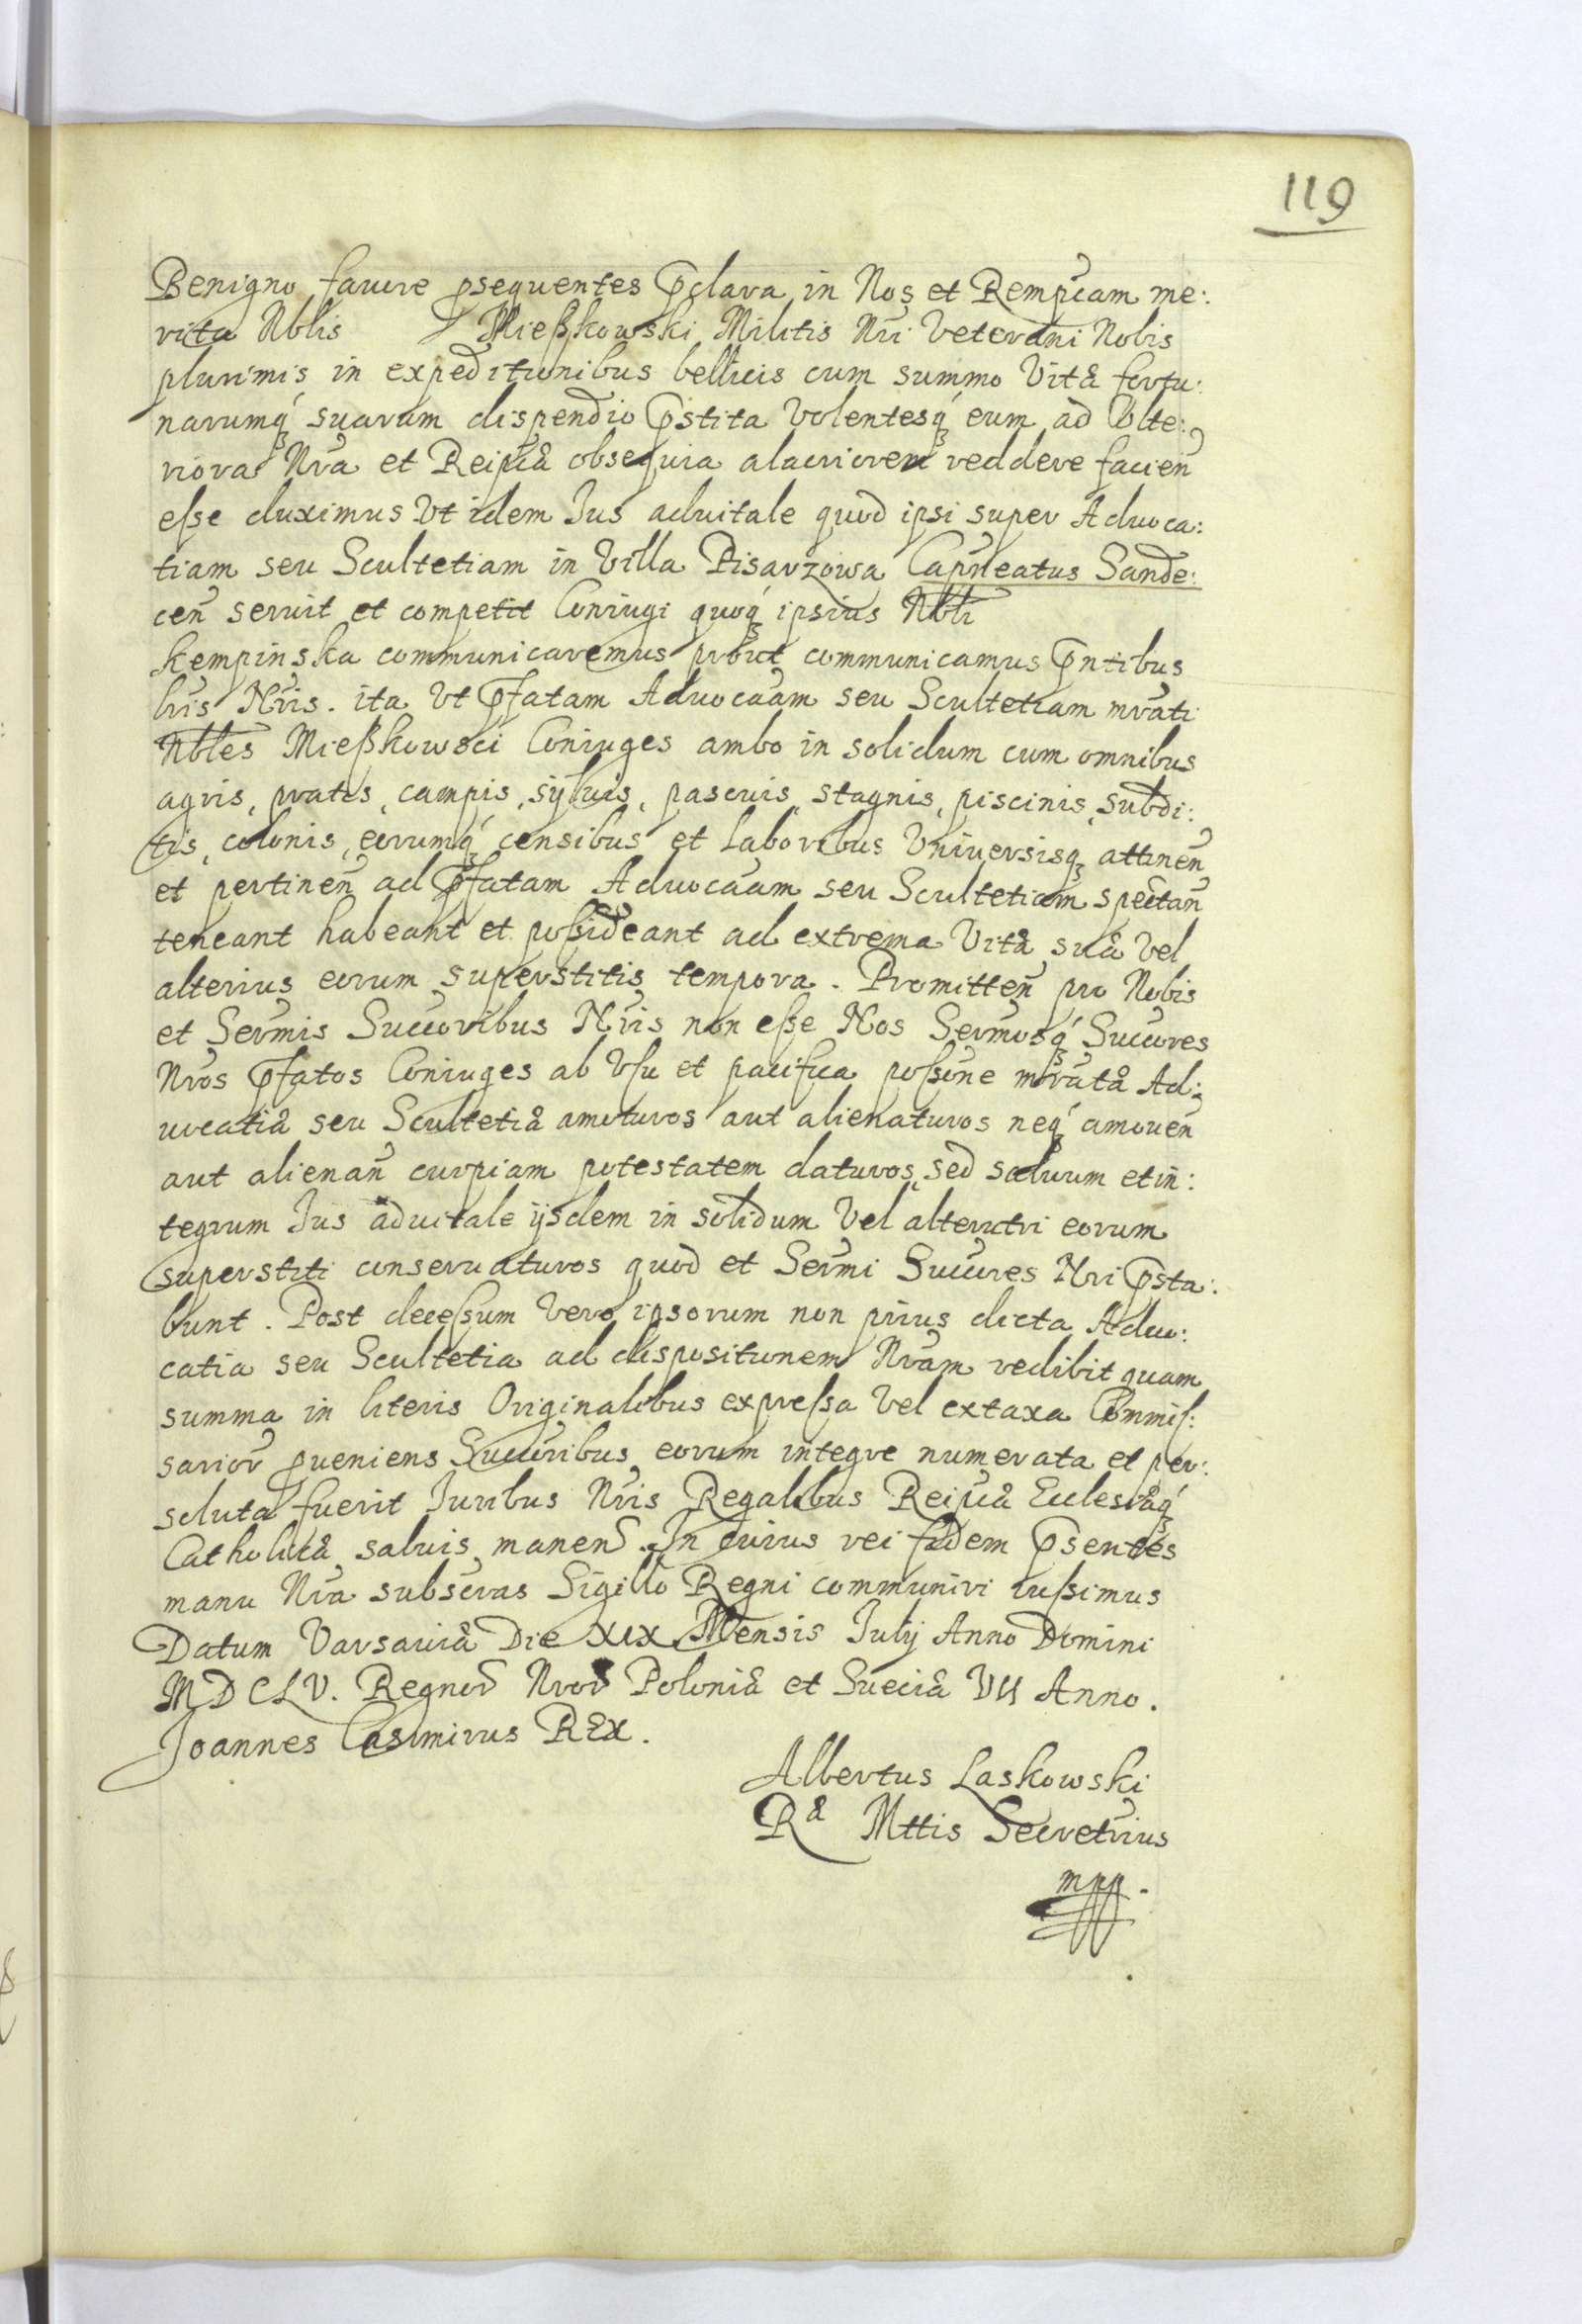 119
Benigno favore psequentes Pclara in Nos et Rempcam me:
rita Nblis Mießkowski Militis Nri Veterani Nobis
plurimis in expeditionibus bellicis cum summo Vitæ fortu:
narumq́ suarum dispendio Pstita Volentesq́ eum ad Vlte:
riora Nra et Reipcæ obsequia alacriorem reddere facien
eſse duximus Vt idem Ius aduitale quod ipsi super Aduoca:
tiam seu Scultetiam in Villa Pisarzowa Capneatus Sande:
cen seruit et competit Coniugi quoq́ ipsius Nbli
Kempinska communicaremus prout communicamus Pntibus
lris Nris. ita Vt Pfatam Aduocaam seu Scultetiam mrati
Nbles Mießkowsci Coniuges ambo in solidum cum omnibus
agris, pratis, campis, syluis, pascuis, stagnis, piscinis, subdi:
tis, colonis, eorumq́ censibus et laboribus Vniuersisq attinen
et pertinen ad Pfatam Aduocaam seu Scultetiam spectan
teneant habeant et poſsideant ad extrema Vitæ suæ Vel
alterius eorum superstitis tempora. Promitten pro Nobis
et Sermis Succoribus Nris non eſse Nos Sermosq́ Succores
Nros Pfatos Coniuges ab Vſu et pacifica poſsone mratæ Ad:
uocatiæ seu Scultetiæ amoturos aut alienaturos neq́ amouen
aut alienan cuipiam potestatem daturos, sed saluum et in:
tegrum Ius aduitale ijsdem in solidum Vel alterutri eorum
superstiti conseruaturos quod et Sermi Succores Nri Psta:
bunt. Post deceſsum Vero ipsorum non prius dicta Aduo:
catia seu Scultetia ad dispositionem Nram redibit quam
summa in literis Originalibus expreſsa Vel ex taxa Commiſ:
sarior pueniens Succoribus eorum integre numerata et per:
soluta fuerit Iuribus Nris Regalibus Reipcæ Ecclesiæq́
Catholicæ saluis manen. In cuius rei fidem Psentes
manu Nra subscras Sigillo Regni communiri iuſsimus
Datum Varsauiæ Die XIX Mensis July Anno Domini
MDCLV. Regnor Nror Poloniæ et Sueciæ VII Anno.
Joannes Casimirus REX.
Albertus Laskowski
Ræ Mttis Secretrius
mpp.